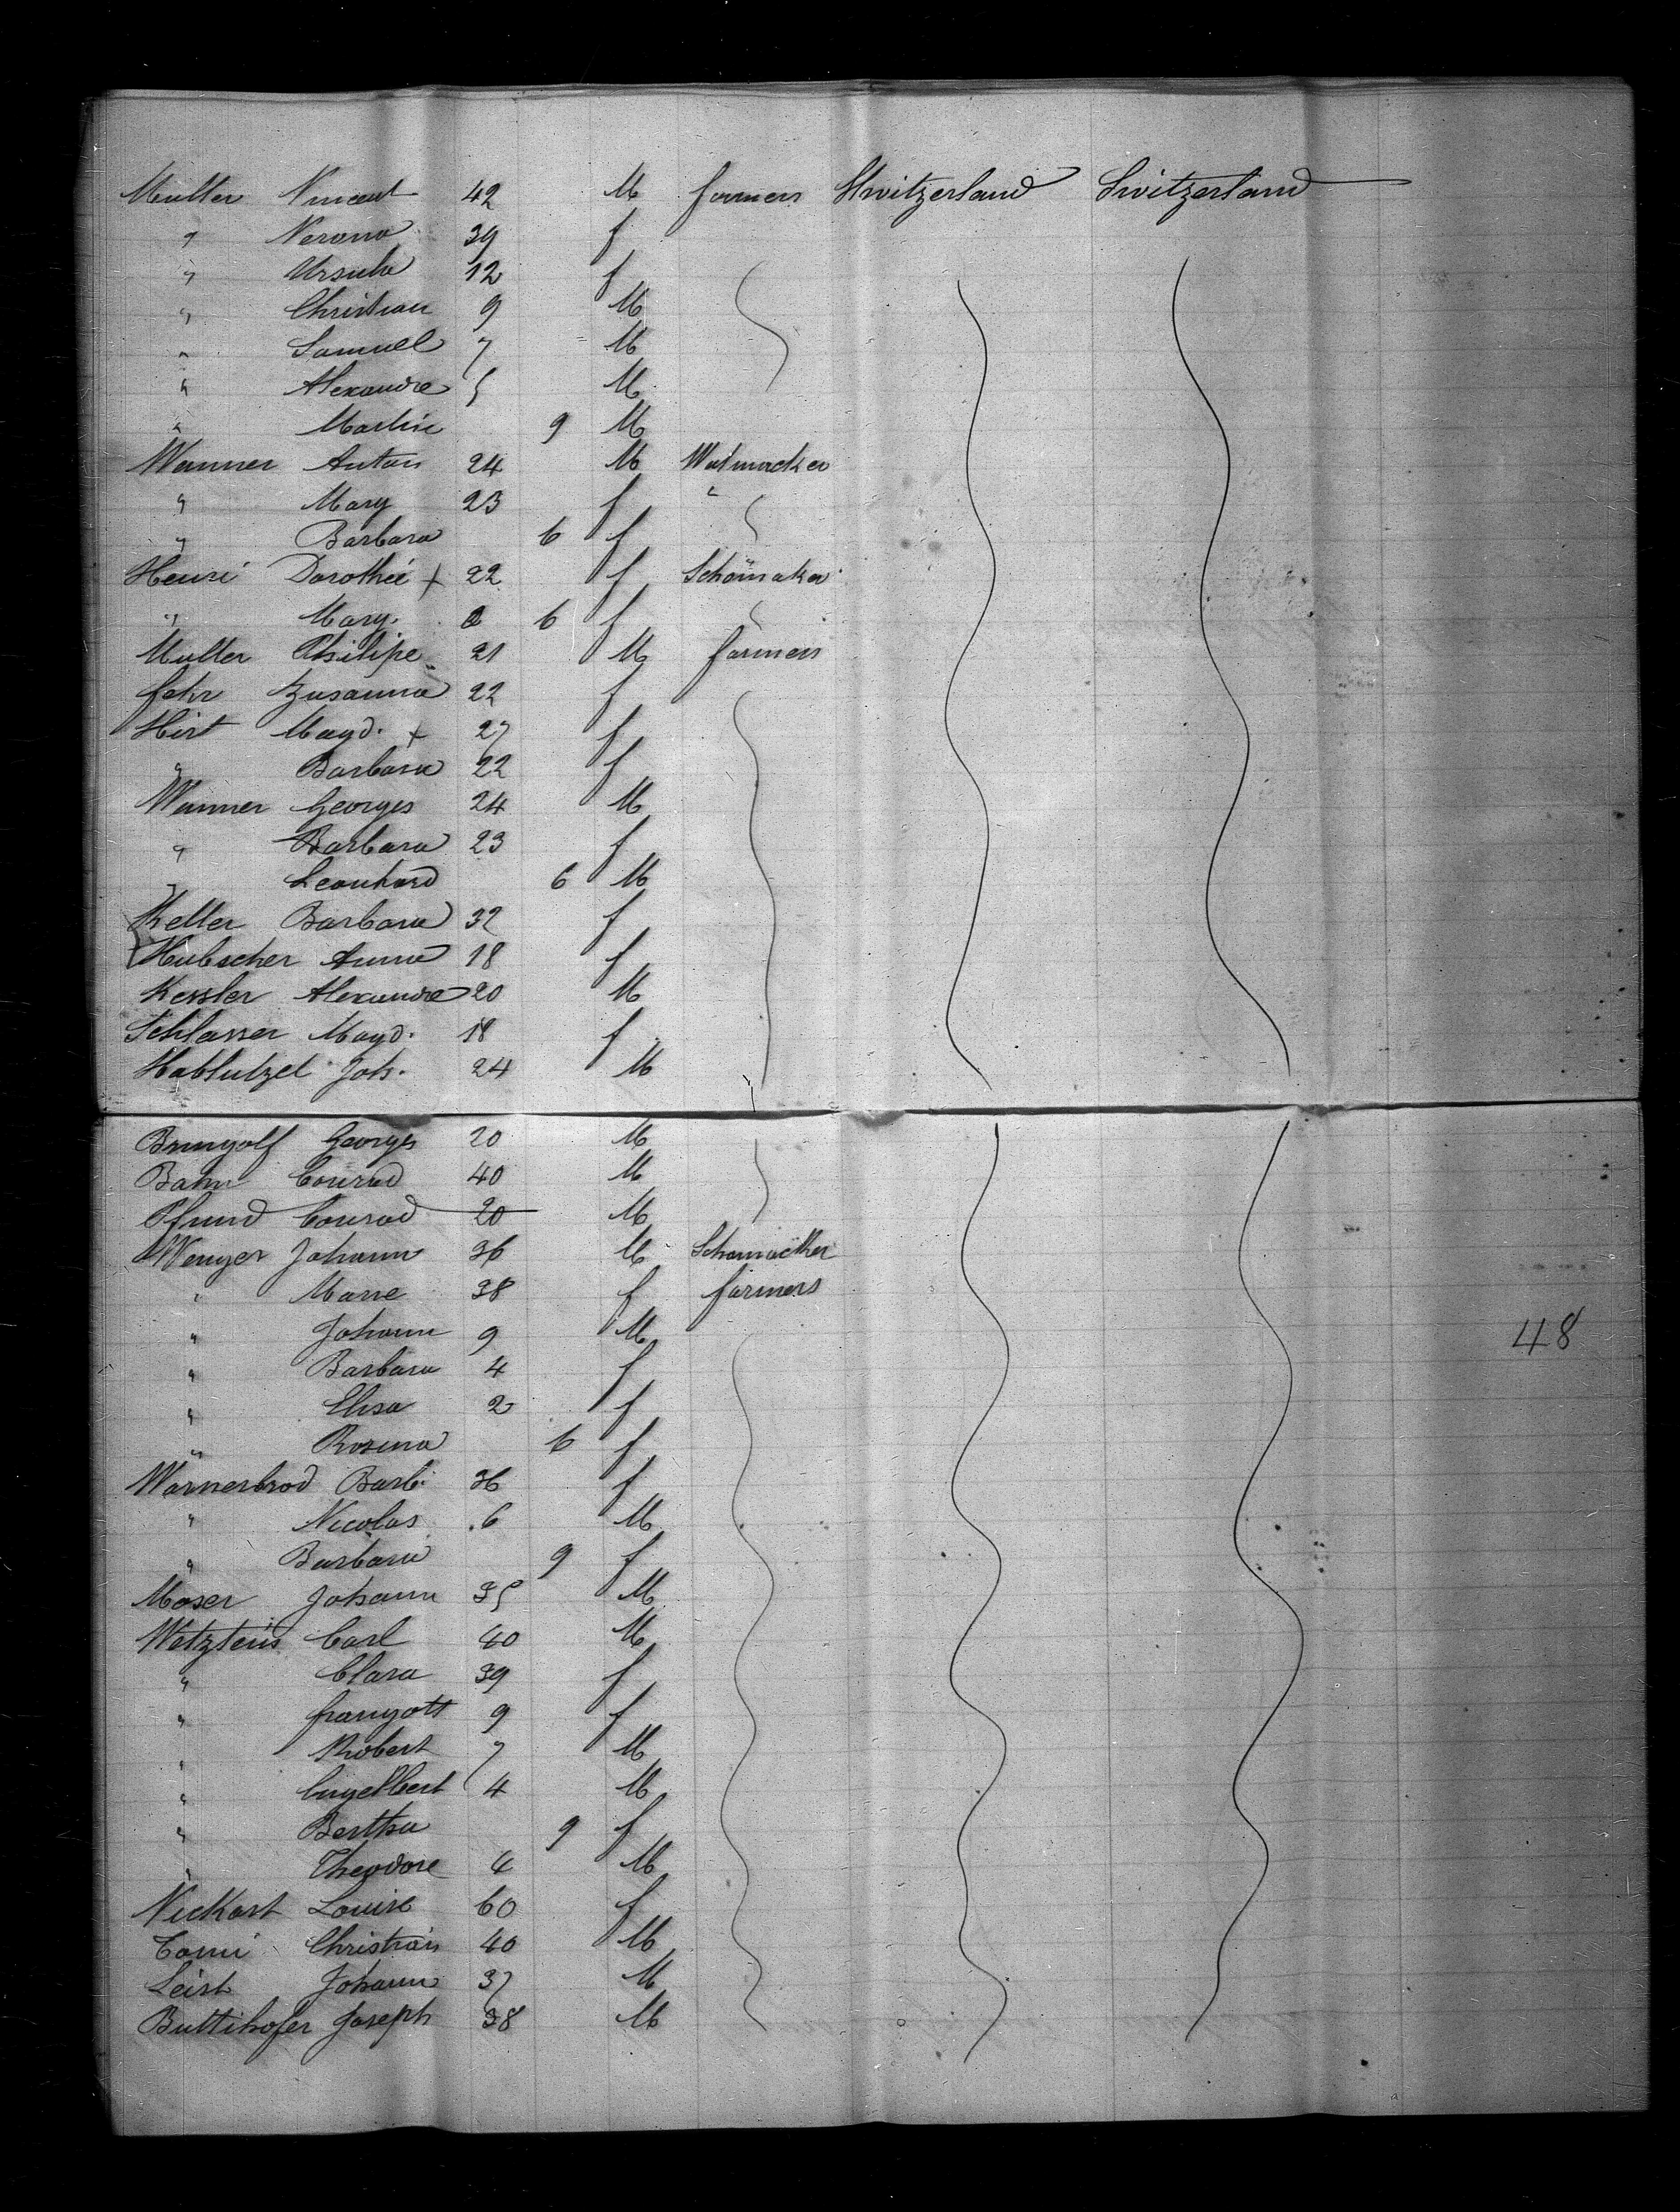 Muller Vincent 42 M farmers Switzerland Switzerland
" Verona 39 f
" Ursula 12 f
" Christian 9 M
" Samuel 7 M
" Alexandre 5 M
" Martin 9 M
Wanner Anton 24 M Watmacker
" Mary 23 f "
" Barbara 6 f
Henri Dorothée + 22 f Schomaker
" Mary 6 f
Muller Philipe 21 M farmers
fehr Zusanna 22 f
Hirt Magd. + 27 f
" Barbara 22 f
Wanner Georges 24 M
" Barbara 23 f
" Leonhard 6 M
Keller Barbara 32 f
Hubscher Anna 18 f
Kessler Alexandre 20 M
Schlasser Magd. 18 f
Hablutzel Joh. 24 M
Brungolf Georges 20 M
Bahn Conrad 40 M
Pfund Conrad 20 M
Wenger Johann 36 M Schomacker
" Marie 38 f farmers
" Johann 9 M
" Barbara 4 f
" Elisa 2 f
" Rosina 6 f
Warnerbrod Barb. 36 f
" Nicolas 6 M
" Barbara 9 f
Moser Johann 35 M
Wetzteis Carl 40 M
" Clara 39 f
" frangott 9 f
" Robert 7 M
" Engelbert 4 M
" Bertha 9 f
" Theodore 4 M
Nickart Louise 60 f
Tomi Christian 40 M
Leist Johann 37 M
Buttihofer Joseph 38 M
48